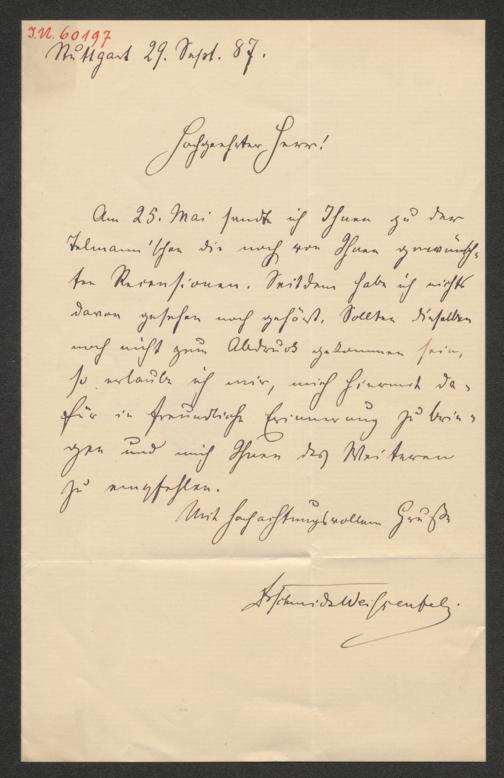 I.N. 60197
Stuttgart 29. Sept. 87.
Hochgeehrter Herr!
Am 25. Mai sandte ich Ihnen zu der
Telmann'schen die noch von Ihnen gewünsch-
ten Recensionen. Seitdem habe ich nichts
davon gesehen noch gehört. Sollten dieselben
noch nicht zum Abdruck gekommen sein,
so erlaube ich mir, mich hiermit da-
für in freundliche Erinnerung zu brin-
gen und mich Ihnen des Weiteren
zu empfehlen.
Mit hochachtungsvollem Gruße
Dr Schmidt Weißenfels.